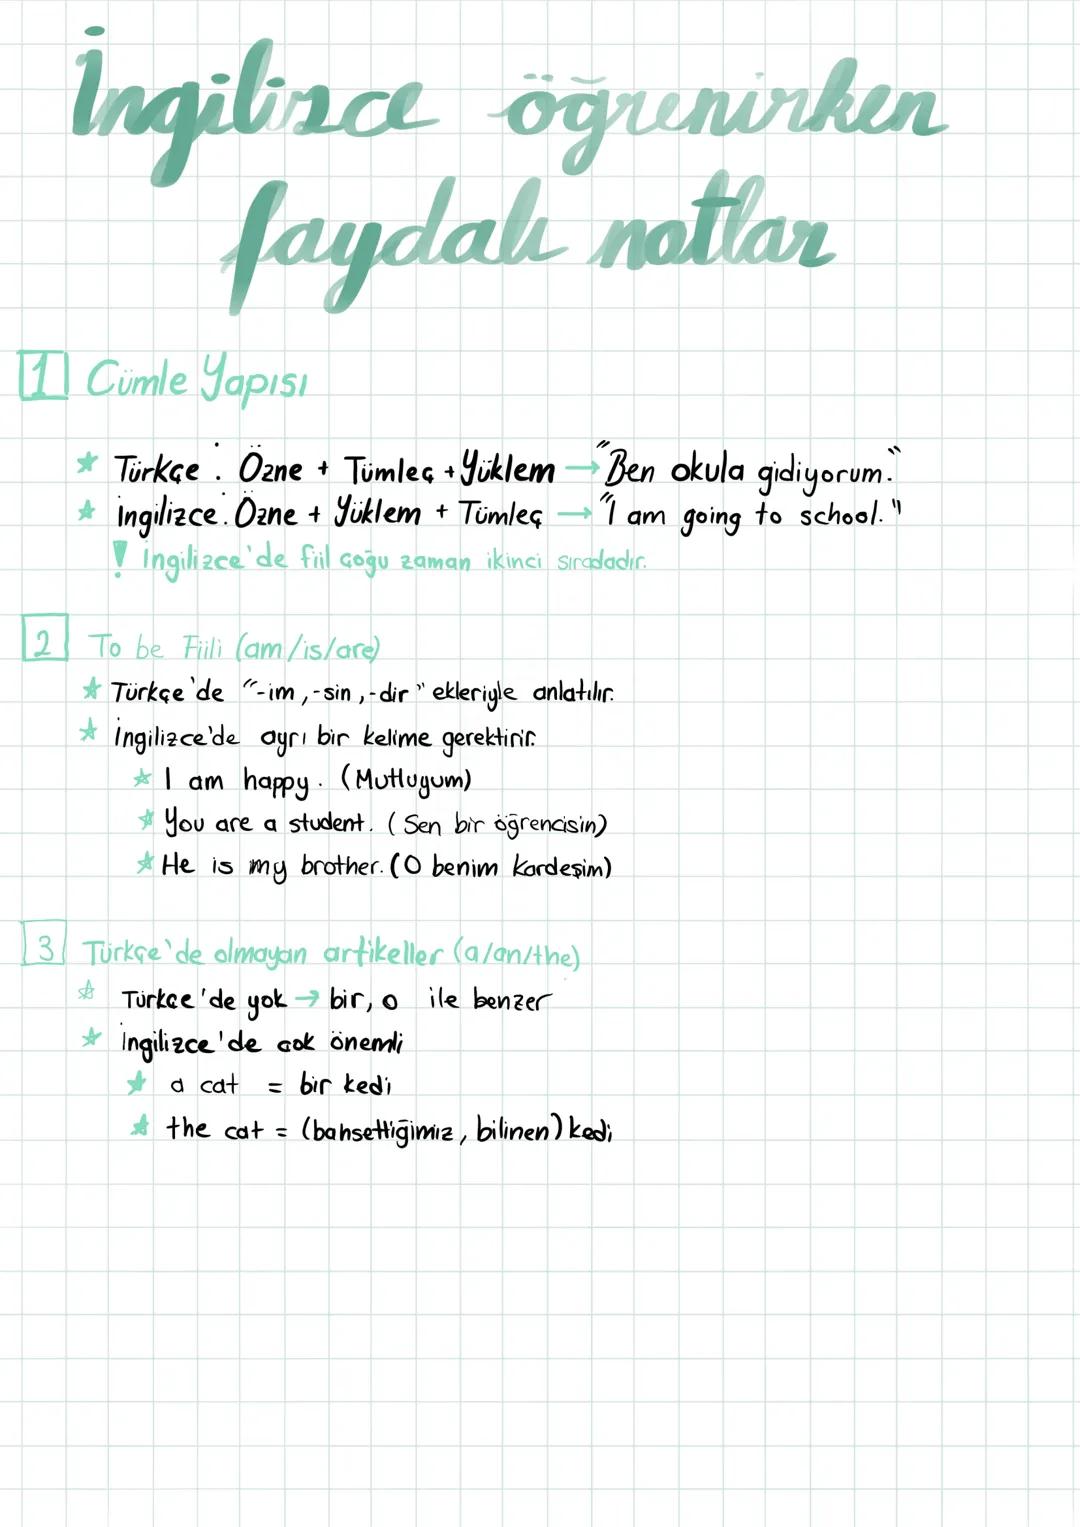 İngilizce öğrenirken
faydalı notlar
1 Cümle Yapısı
★ Türkçe : Özne + Tümleç + Yüklem → "Ben okula gidiyorum."
★ İngilizce : Özne + Yüklem + Tümleç → "I am going to school."
! İngilizce'de fiil çoğu zaman ikinci sıradadır.
2 To be Fiili (am/is/are)
★ Türkçe'de "-im, -sin, -dir" ekleriyle anlatılır.
★ İngilizce'de ayrı bir kelime gerektirir.
★ I am happy. (Mutluyum)
★ You are a student. (Sen bir öğrencisin)
★ He is my brother. (O benim kardeşim)
3 Türkçe'de olmayan artikeller (a/an/the)
★ Türkçe'de yok → bir, o ile benzer
★ İngilizce'de çok önemli
★ a cat = bir kedi
★ the cat = (bahsettiğimiz, bilinen) kedi